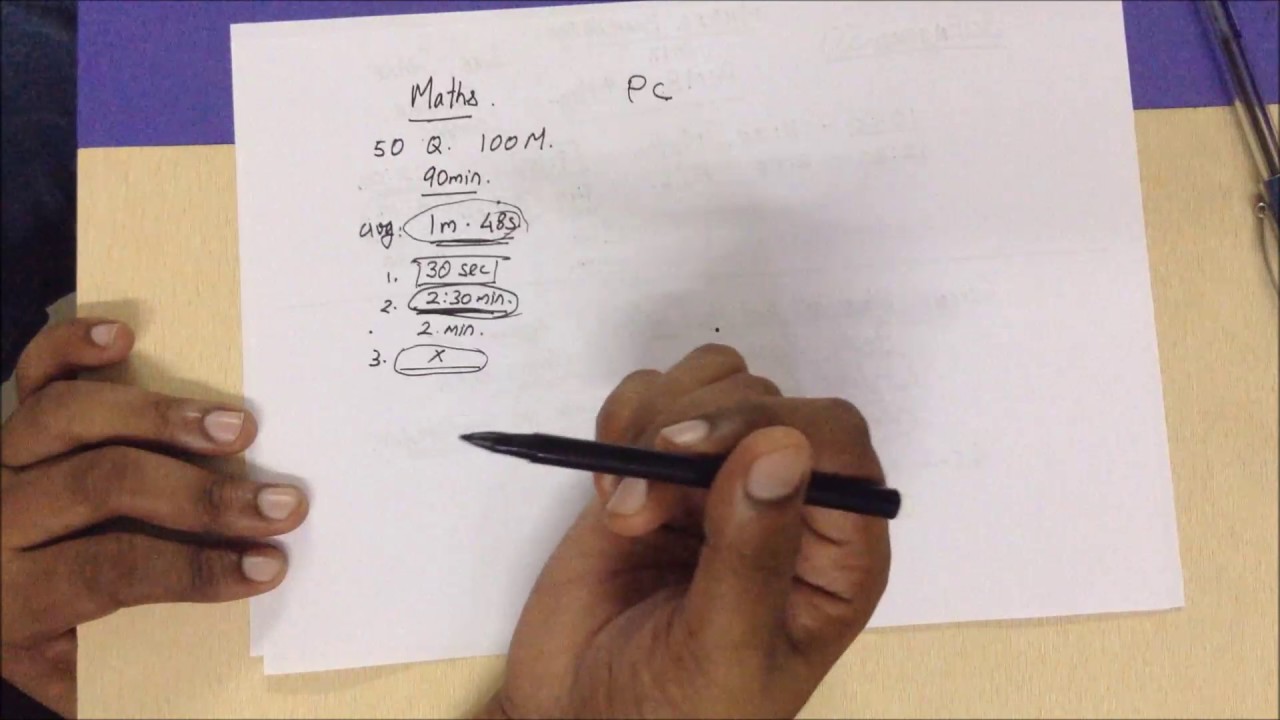 Maths.
PC
50 Q. 100M.
90min.
avg: 1m. 48s
1. 30 sec
2. 2:30 min.
2 min.
3. x